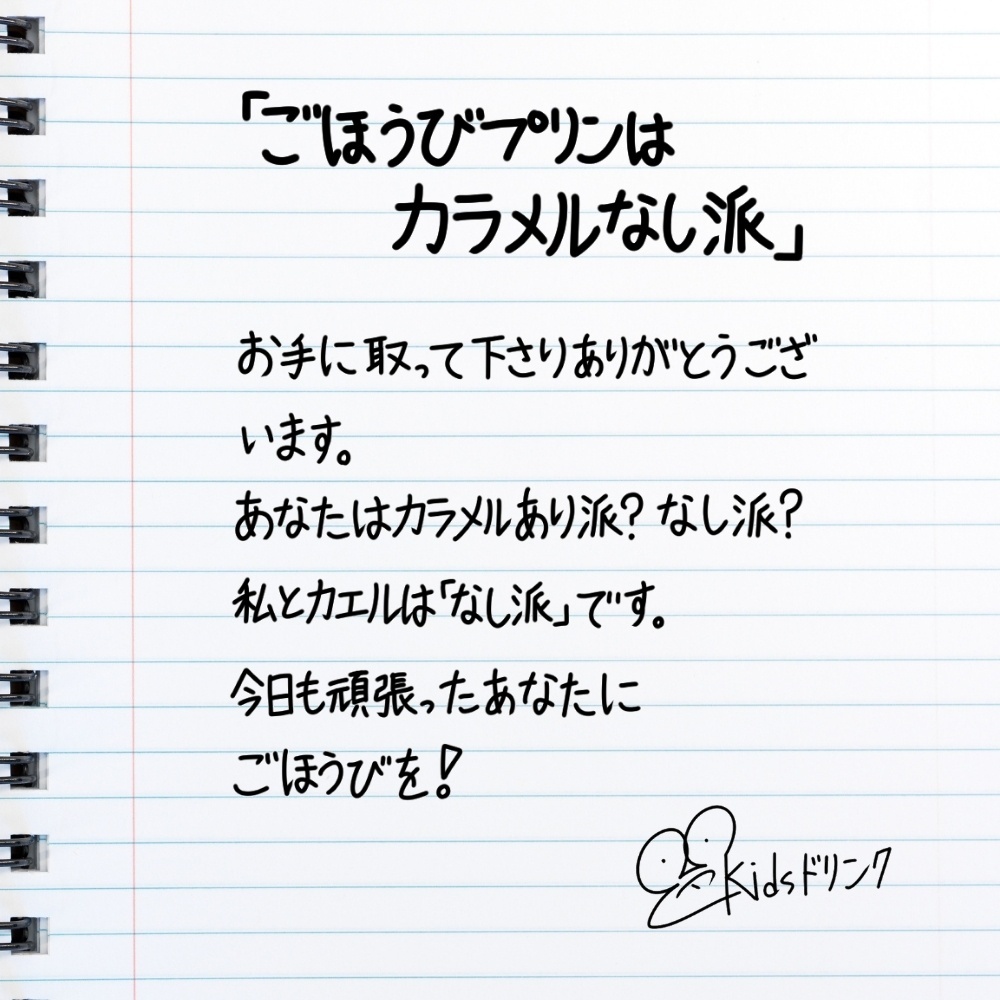 「ごほうびプリンは
カラメルなし派」
お手に取って下さりありがとうござ
います。
あなたはカラメルあり派？なし派？
私とカエルは「なし派」です。
今日も頑張ったあなたに
ごほうびを！
Kidsドリンク